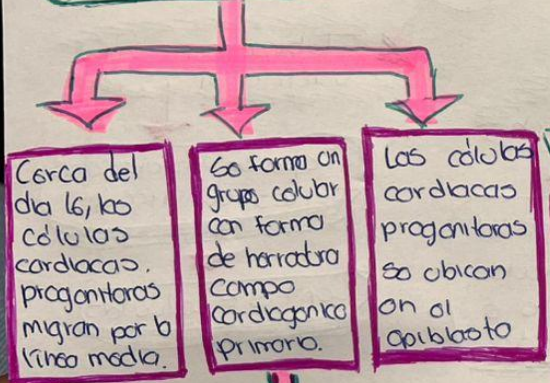 Cerca del
dia 16, las
células
cardiacas.
progenitoras
migran por la
linea media.
Se forma un
grupo celular
con forma
de herradura
campo
cardiogenico
primario.
Las células
cardiacas
progenitoras
se ubican
en el
epiblasto